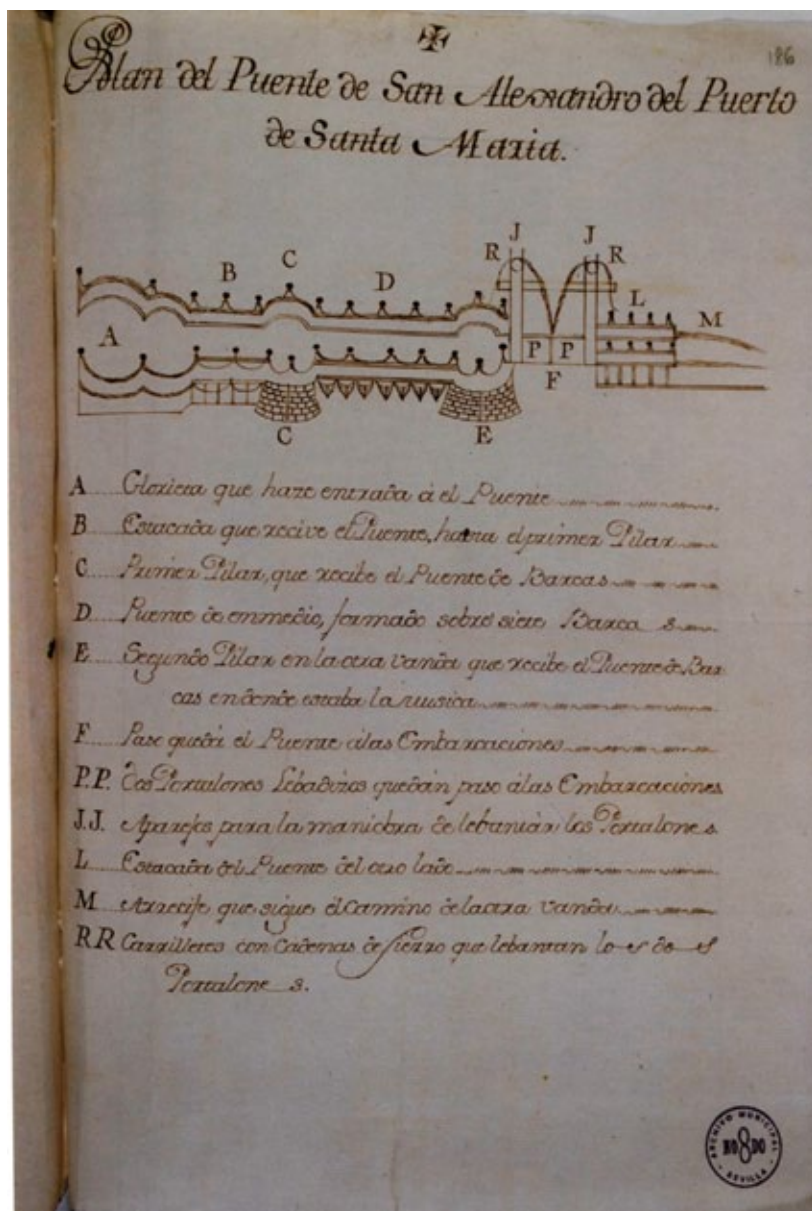 186
Plan del Puente de San Alexandro del Puerto
de Santa Maria.
J J
R R
B C D L M
A P P
F
C E
A Glorieta que haze entrada á el Puente
B Estacada que recive el Puente, hasta el primer Pilar
C Primer Pilar, que recibe el Puente de Barcas
D Puente de enmedio, formado sobre siete Barcas
E Segundo Pilar en la otra vanda que recibe el Puente de Bar
cas en donde estaba la musica
F Paso que dá el Puente á las Embarcaciones
P.P. Dos Portalones Lebadizos que dán paso á las Embarcaciones
J.J. Aparejos para la maniobra de lebantár los Portalones
L Estacada del Puente del otro lado
M Arrecife que sigue el Camino de la otra vanda
RR Carrilleres con Cadenas de fierro que lebantan los dos
Portalones.
ARCHIVO MUNICIPAL
NO8DO
SEVILLA